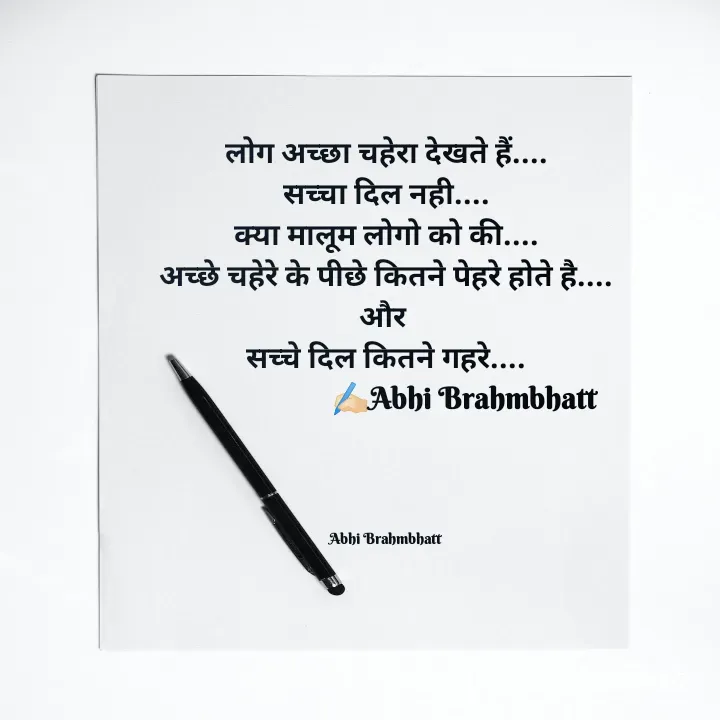 लोग अच्छा चहेरा देखते हैं....
सच्चा दिल नही....
क्या मालूम लोगो को की....
अच्छे चहेरे के पीछे कितने पेहरे होते है....
और
सच्चे दिल कितने गहरे....
✍🏻Abhi Brahmbhatt
Abhi Brahmbhatt